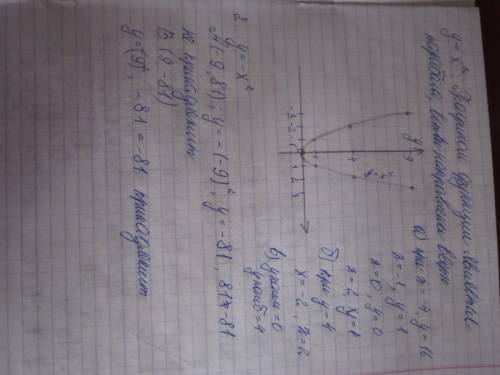 y=x². Графиком функции является
парабола, ветви направлены вверх
а) при x=-4, y=16
x=-1, y=1
x=0, y=0
б) при y=4
x=2
x=-2, x=2
в) yнаим=0
yнаиб=4
y
9
4
1
-3 -2 1 2 3
2 y=-x²
A(-9,81); y=-(-9)², y=-81, 81≠-81
не принадлежит
B(9 -81)
y=(9)², -81=-81 принадлежит